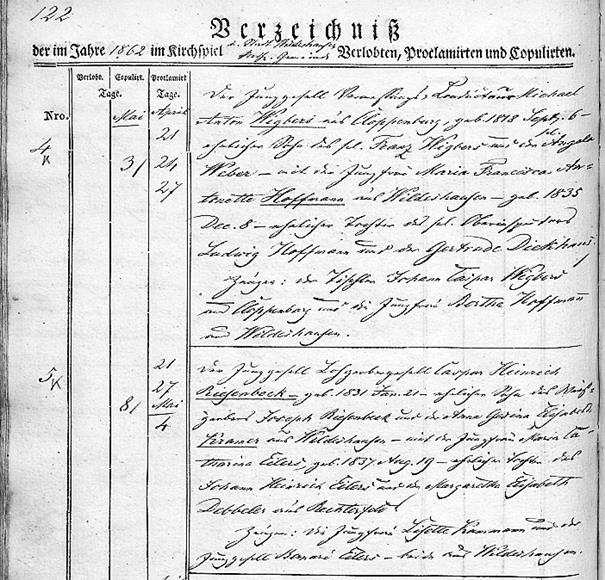 122
Verzeichniß
der im Jahre 1862 im Kirchspiel d. Stadt Wildeshausen Kath. Gemeinde Verlobten, Proclamirten und Copulirten.
Nro.
Verlobt. Copulirt. Proclamirt
Tage. Tage.
Mai April
4
K
3/
21
24
27
Der Junggesell Vermessungs-Conducteur Michael
Anton Wigbers aus Cloppenburg, geb. 1818 Septb. 6 –
ehelicher Sohn des sel. Franz Wigbers und der sel. Angela
Weber – mit der Jungfrau Maria Francisca An-
tonette Hoffmann aus Wildeshausen – geb. 1835
Dec. 8 – ehelicher Tochter des sel. Oberinspectors
Ludwig Hoffmann und der Gertrude Dickhaus.
Zeugen: der Tischler Johann Caspar Wigbers
aus Cloppenburg und die Jungfrau Bertha Hoffmann
aus Wildeshausen.
5
K
8/
21
27
Mai
4
Der Junggesell Lohgerbergesell Caspar Heinrich
Riesenbeck – geb. 1831 Jan. 21 – ehelicher Sohn des Weiß-
gerbers Joseph Riesenbeck und der Anna Gesina Elisabeth
Kramer aus Wildeshausen – mit der Jungfrau Maria Ca-
tharina Eilers, geb. 1837. Aug. 19 – ehelicher Tochter des
Johann Heinrich Eilers und der Margaretha Elisabeth
Debbeler aus Rechterfeld.
Zeugen: die Jungfrau Lisette Kammann und der
Junggesell Eilers – beide aus Wildeshausen.